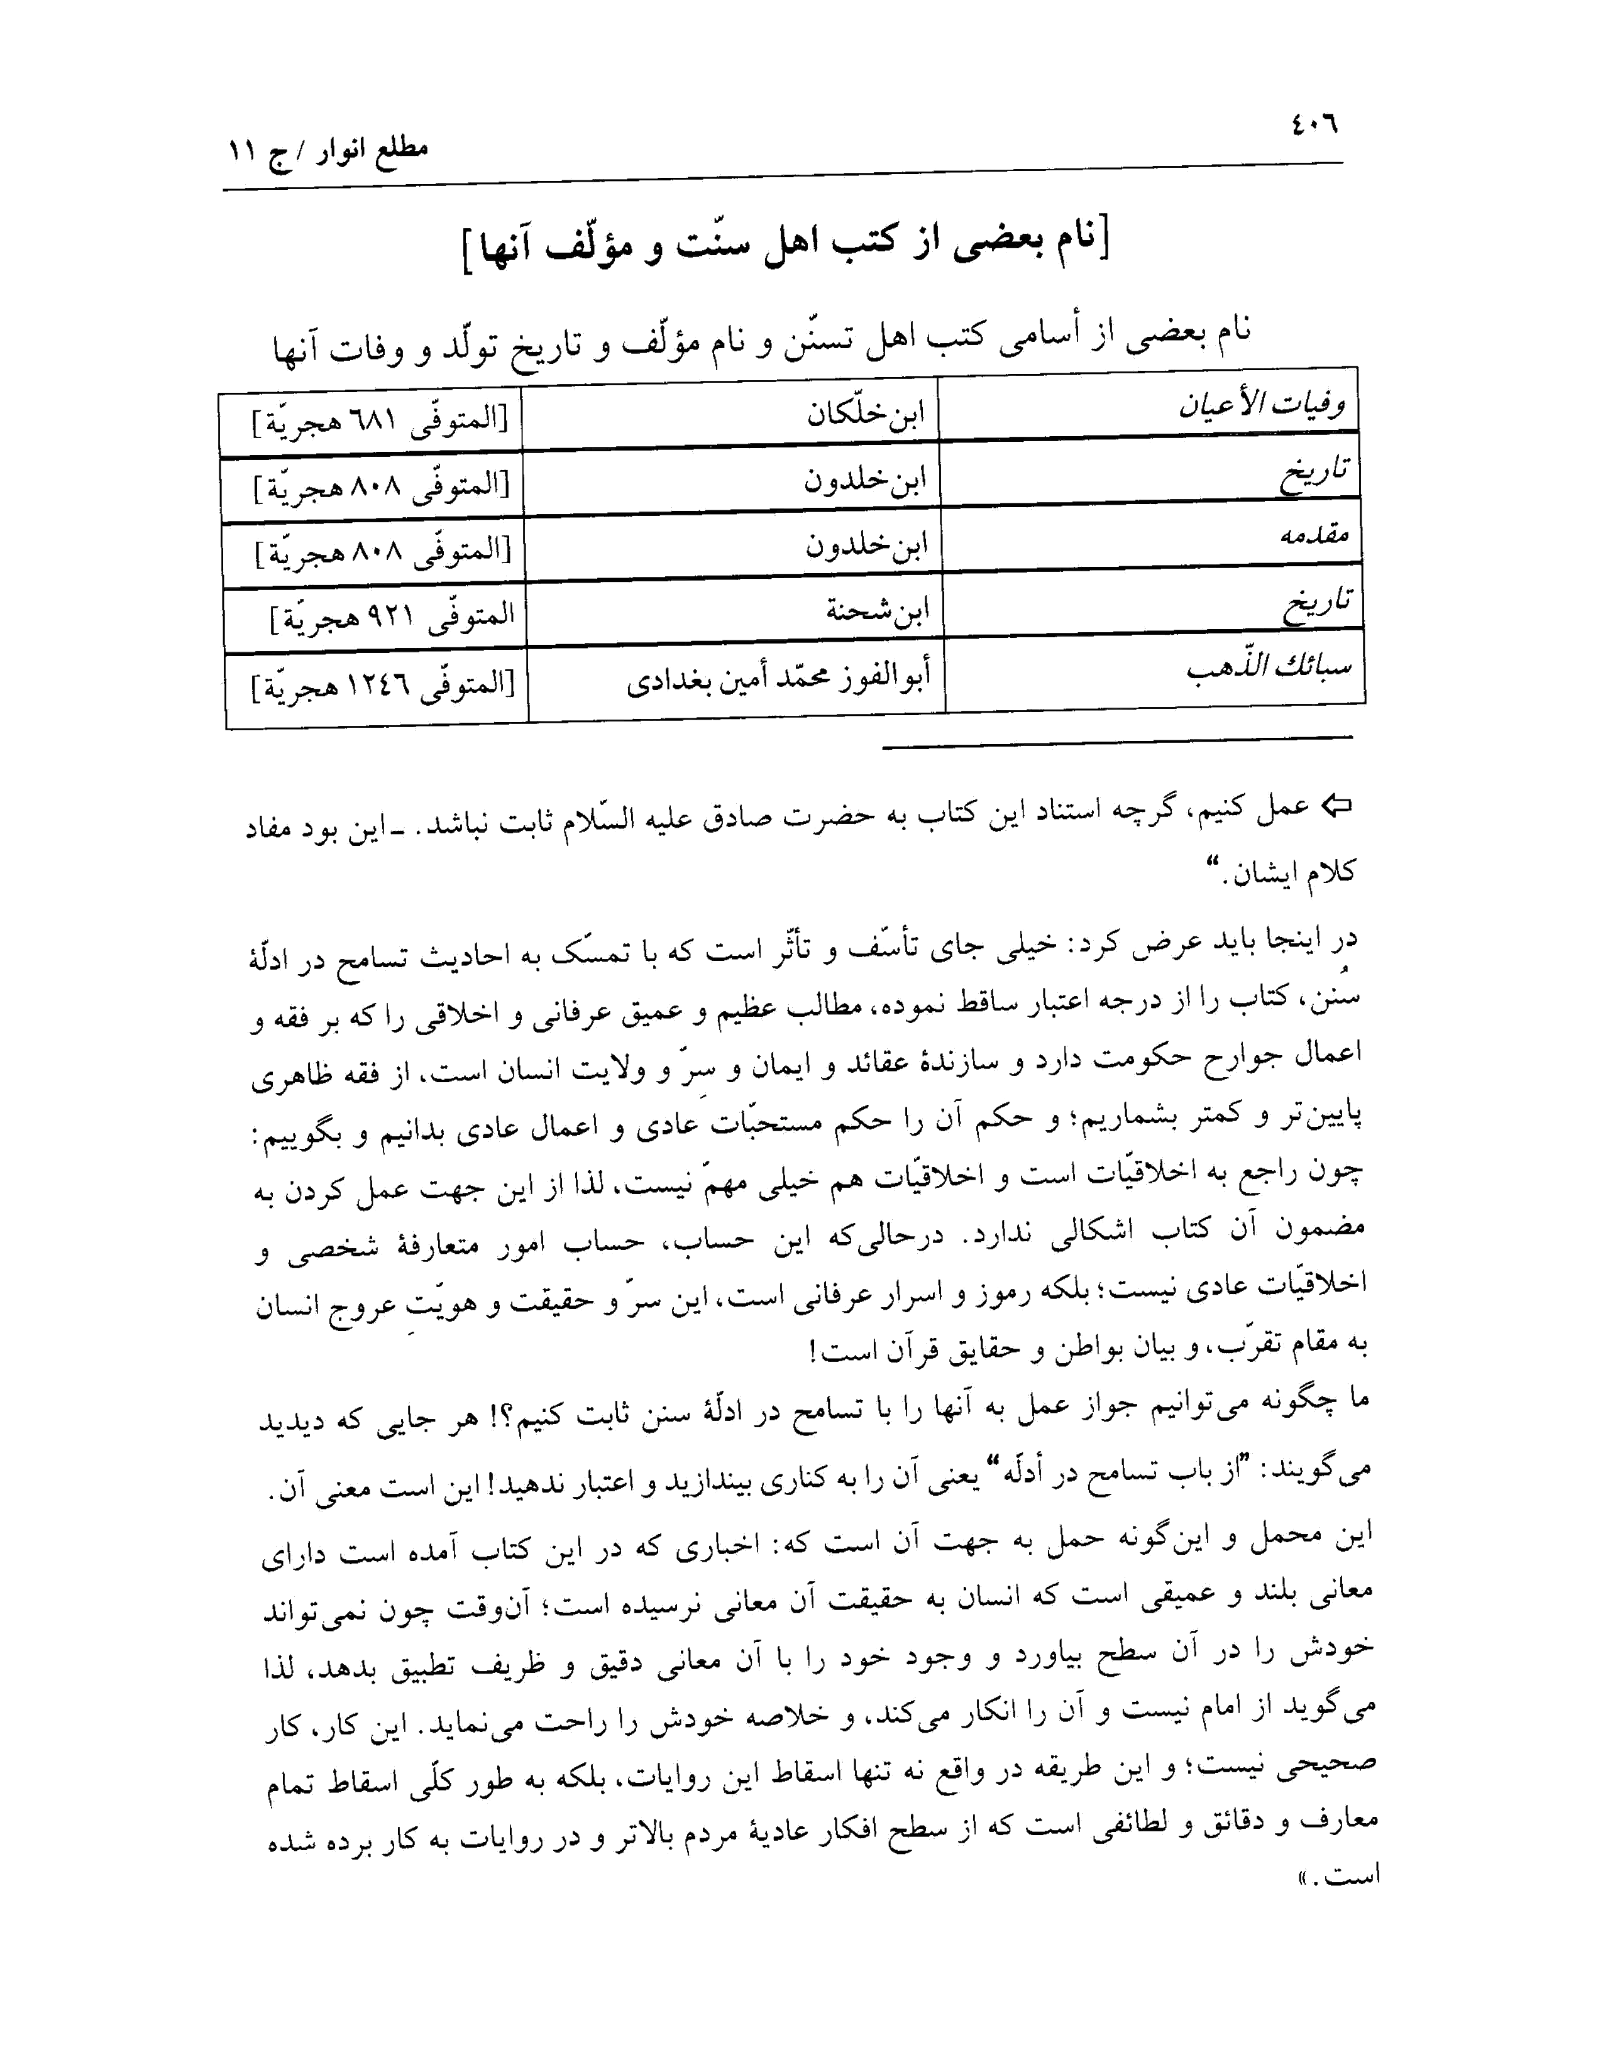 ٤٠٦
مطلع انوار / ج ١١
[نام بعضی از کتب اهل سنّت و مؤلّف آنها]
نام بعضی از أسامی کتب اهل تسنّن و نام مؤلّف و تاریخ تولّد و وفات آنها
وفیات الأعیان ابن‌خلّکان [المتوفّی ٦٨١ هجریّة]
تاریخ ابن‌خلدون [المتوفّی ٨٠٨ هجریّة]
مقدمه ابن‌خلدون [المتوفّی ٨٠٨ هجریّة]
تاریخ ابن‌شحنة المتوفّی ٩٢١ هجریّة]
سبائك الذّهب أبوالفوز محمّد أمین بغدادی [المتوفّی ١٢٤٦ هجریّة]
⇦ عمل کنیم، گرچه استناد این کتاب به حضرت صادق علیه السّلام ثابت نباشد. ـ این بود مفاد
کلام ایشان.“
در اینجا باید عرض کرد: خیلی جای تأسّف و تأثّر است که با تمسّک به احادیث تسامح در ادلّۀ
سُنن، کتاب را از درجه اعتبار ساقط نموده، مطالب عظیم و عمیق عرفانی و اخلاقی را که بر فقه و
اعمال جوارح حکومت دارد و سازندۀ عقائد و ایمان و سِرّ و ولایت انسان است، از فقه ظاهری
پایین‌تر و کمتر بشماریم؛ و حکم آن را حکم مستحبّات عادی و اعمال عادی بدانیم و بگوییم:
چون راجع به اخلاقیّات است و اخلاقیّات هم خیلی مهمّ نیست، لذا از این جهت عمل کردن به
مضمون آن کتاب اشکالی ندارد. درحالی‌که این حساب، حساب امور متعارفۀ شخصی و
اخلاقیّات عادی نیست؛ بلکه رموز و اسرار عرفانی است، این سرّ و حقیقت و هویّتِ عروج انسان
به مقام تقرّب، و بیان بواطن و حقایق قرآن است!
ما چگونه می‌توانیم جواز عمل به آنها را با تسامح در ادلّۀ سنن ثابت کنیم؟! هر جایی که دیدید
می‌گویند: ”از باب تسامح در أدلّه“ یعنی آن را به کناری بیندازید و اعتبار ندهید! این است معنی آن.
این محمل و این‌گونه حمل به جهت آن است که: اخباری که در این کتاب آمده است دارای
معانی بلند و عمیقی است که انسان به حقیقت آن معانی نرسیده است؛ آن‌وقت چون نمی‌تواند
خودش را در آن سطح بیاورد و وجود خود را با آن معانی دقیق و ظریف تطبیق بدهد، لذا
می‌گوید از امام نیست و آن را انکار می‌کند، و خلاصه خودش را راحت می‌نماید. این کار، کار
صحیحی نیست؛ و این طریقه در واقع نه تنها اسقاط این روایات، بلکه به طور کلّی اسقاط تمام
معارف و دقائق و لطائفی است که از سطح افکار عادیۀ مردم بالاتر و در روایات به کار برده شده
است.»